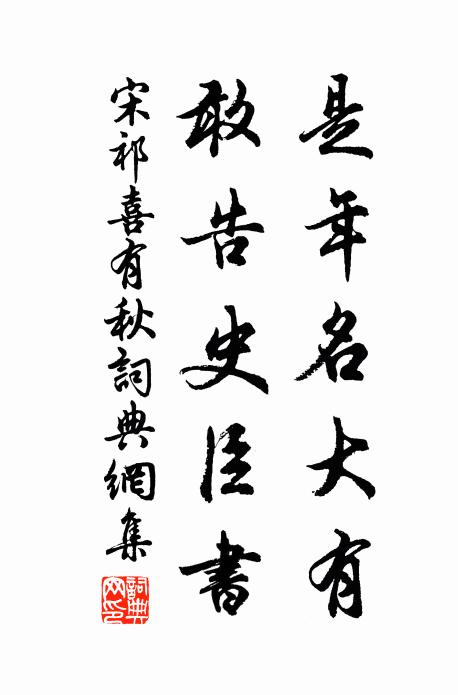 是年名大有
敢告史臣書
宋祁喜有秋詞典網集
詞典网印